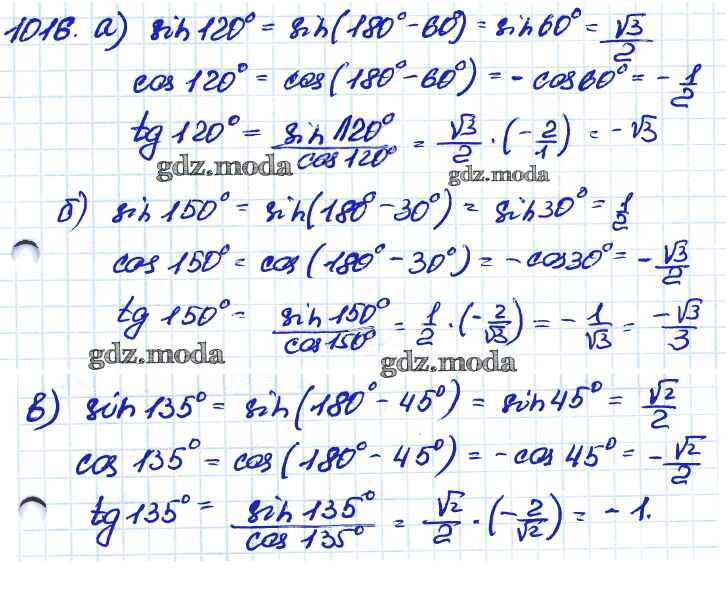 1016. а) sin 120° = sin(180° - 60°) = sin 60° = √3/2
cos 120° = cos(180° - 60°) = - cos 60° = - 1/2
tg 120° = sin 120°/cos 120° = √3/2 · (- 2/1) = - √3
gdz.moda gdz.moda
б) sin 150° = sin(180° - 30°) = sin 30° = 1/2
cos 150° = cos(180° - 30°) = - cos 30° = - √3/2
tg 150° = sin 150°/cos 150° = 1/2 · (- 2/√3) = - 1/√3 = -√3/3
gdz.moda gdz.moda
в) sin 135° = sin(180° - 45°) = sin 45° = √2/2
cos 135° = cos(180° - 45°) = - cos 45° = - √2/2
tg 135° = sin 135°/cos 135° = √2/2 · (- 2/√2) = - 1.